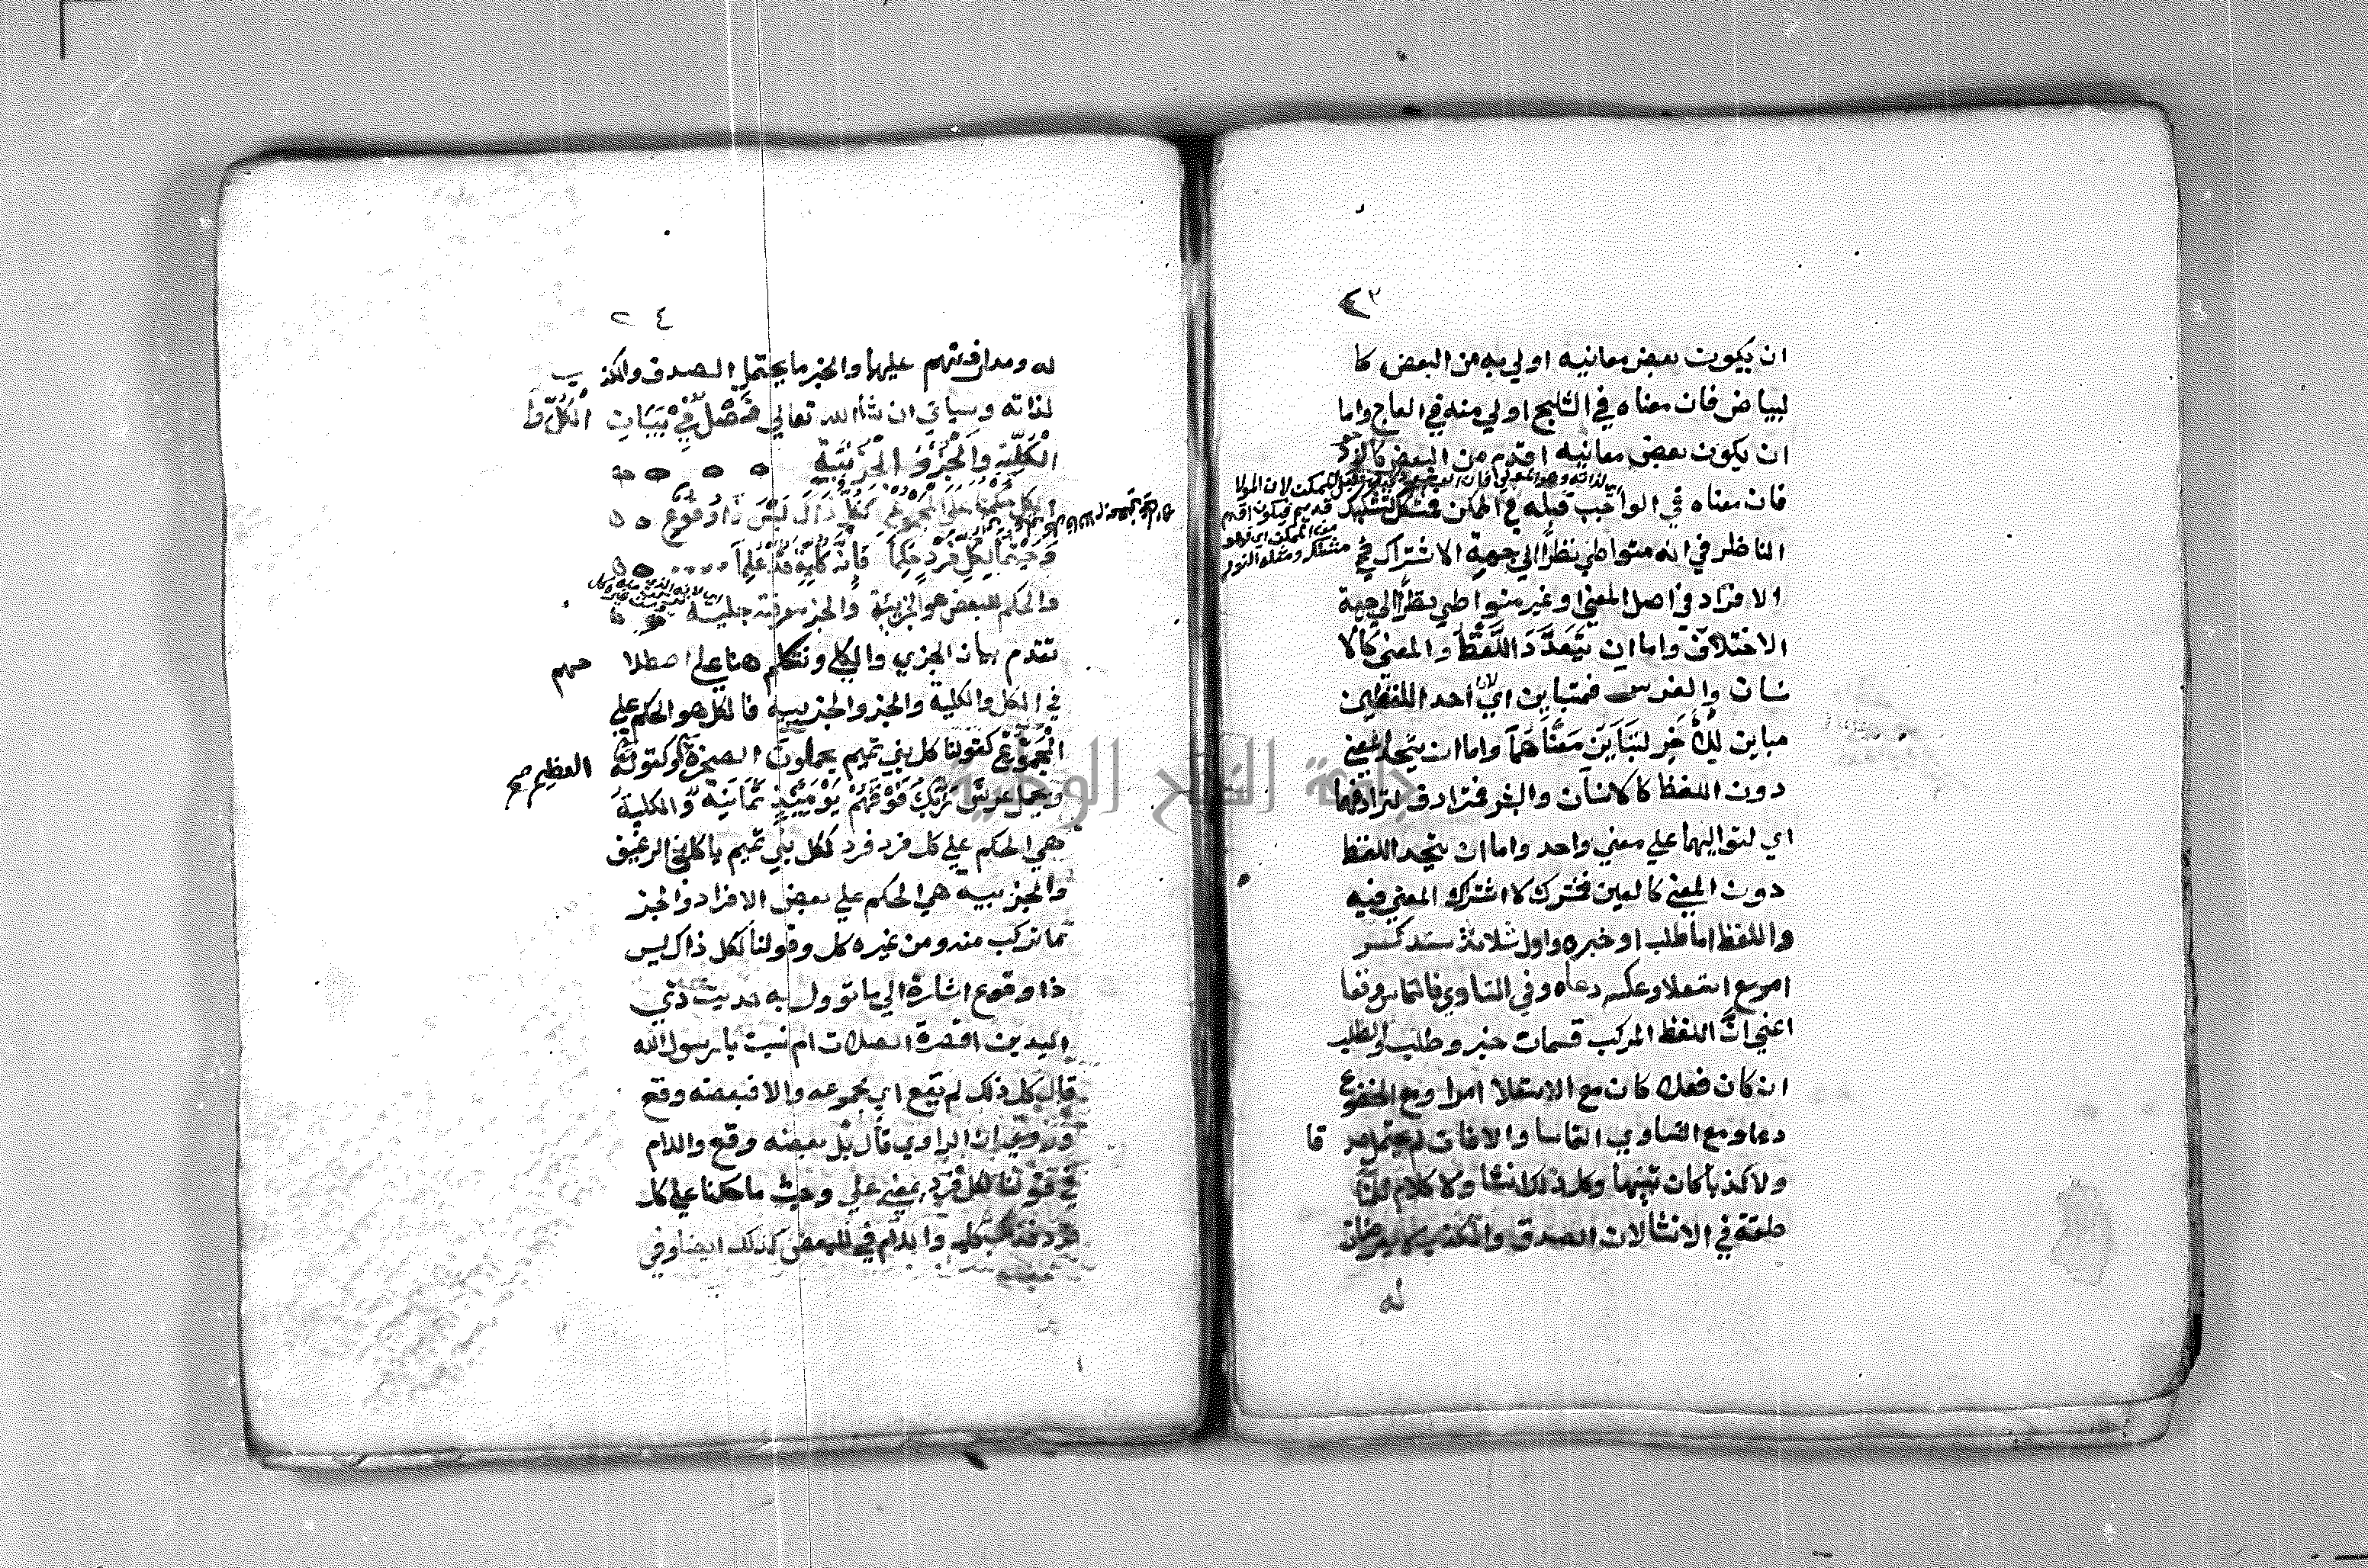 ٢٣
ان يكون بعض معانيه اولي به من البعض كا
لبياض فان معناه في الثلج اولي منه في العاج واما
ان يكون بعض معانيه اقدم من البعض كالوجود
فان معناه في الواجب قبله في الممكن فمشكل لتشكيك
الناظر في انه متواطي نظرا الي جهة الاشتراك في
الافراد في اصل المعني او غير متواطي نظرا الي جهة
الاختلاف واما ان يتعدد اللفظ والمعني كالا
نسان والفرس فمتباين اي لان احد اللفظين
مباين للأخر لتباين معناهما واما ان يتحد المعني
دون اللفظ كالانسان والبشر فمترادف لترادفهما
اي لتواليهما علي معني واحد واما ان يتحد اللفظ
دون المعني كالعين فمشترك لاشتراك المعني فيه
واللفظ اما طلب او خبره واول ثلاثة ستذكر
امر مع استعلا وعكسه دعاه وفي التساوي فالتماس وقعا
اعني ان اللفظ المركب قسمان خبر وطلب والطلب
ان كان فعلا كان مع الاستعلا امرا ومع الخضوع
دعا ومع التساوي التماسا والا فان لم يحتمل صد قا
ولا كذبا كان تنبيها وكل ذلك انشا ولا كلام للمنا
طقة في الانشا لان الصدق والكذب
له
٢٤
له ومدافعتهم عليها والخبر ما يحتمل الصدق والكذ ب
لذاته وسياتي ان شاالله تعالي فصل في بيان الكل وا
لكلية والجزء والجزئية
الكل حكمنا علي المجموع ككل ذاك ليس ذا وقوع
وحيثما لكل فرد حكما فانه كلية قد علما
والحكم للبعض هو الجزئية والجز معرفته جلية
تقدم بيان الجزي والكلي ونتكلم هنا علي اصطلا حهم
في الكل والكلية والجز والجزيية فالكل هو الحكم علي
المجموع كقولنا كل بني تميم يحملون الصخرة وكقوله العظيم صح
ويحمل عرش ربك فوقهم يومئذ ثمانية والكلية
هي الحكم علي كل فرد فرد ككل بني تميم ياكلون الرغيف
والجزيية هي الحكم علي بعض الافراد والجز
ما تركب منه ومن غيره كل وقولنا ككل ذاك ليس
ذا وقوع اشارة الي ما توول به حديث ذي
اليدين اقصرة الصلات ام نسيت يا رسول الله
قال كل ذلك لم يقع اي مجموعه والا فبعضه وقع
وروي ان الراوي قال بل بعضه وقع واللام
في قولنا لكل فرد بمعني علي وحيث ما حكمنا علي كل
فرد فذاك كلية واللام في للبعض كذلك ايضا وفي